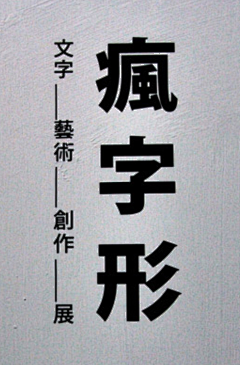 瘋字形
文字──藝術──創作──展